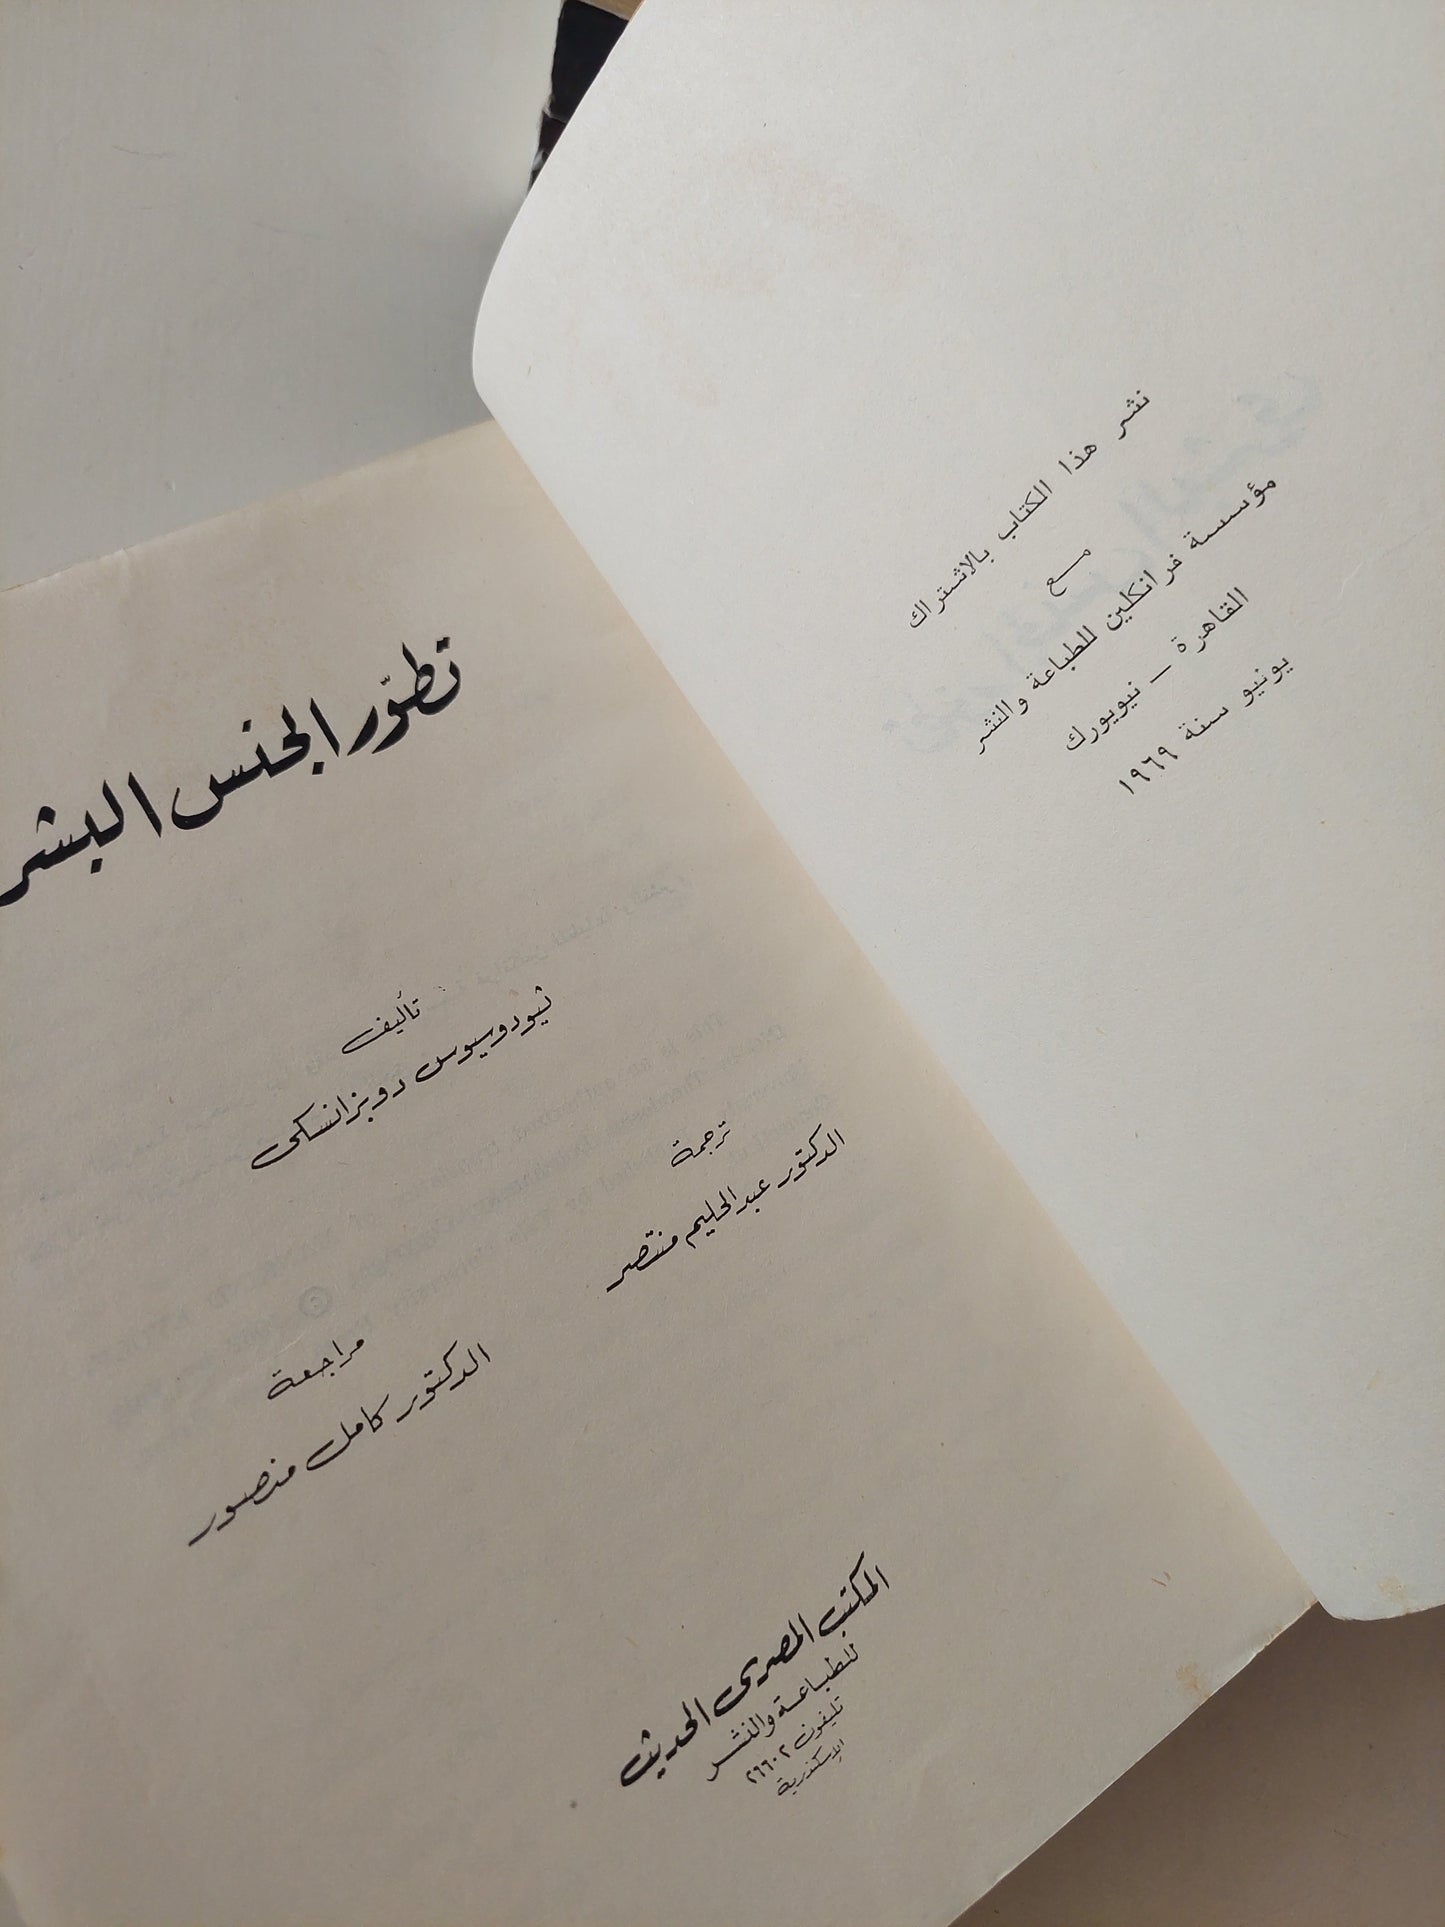 نشر هذا الكتاب بالاشتراك
مـــع
مؤسسة فرانكلين للطباعة والنشر
القاهرة — نيويورك
يونيو سنة ١٩٦٩
تطوّر الجنس البشر
تأليف
ثيودوسيوس دوبزانسكى
ترجمة
الدكتور عبدالحليم منتصر
مراجعة
الدكتور كامل منصور
المكتب المصرى الحديث
للطباعة والنشر
تليفون ٢٦٦٠٢
الإسكندرية